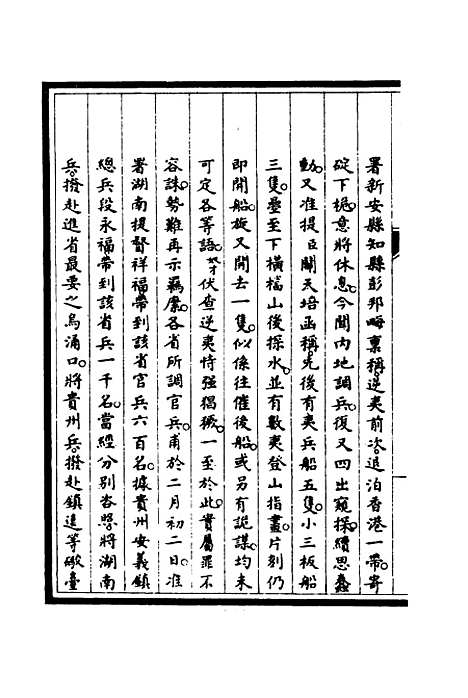 署新安縣知縣彭邦晦稟稱逆夷前次退泊香港一帶寄
碇下桅意將休息今聞內地調兵復又四出窺探續思蠢
動又准提臣關天培函稱先後有夷兵船五隻小三板船
三隻疊至下橫檔山後探水並有數夷登山指畫片刻仍
即開船旋又開去一隻似係往催後船或另有詭謀均未
可定各等語奴才伏查逆夷恃強猖獗一至於此實屬罪不
容誅勢難再示羈縻各省所調官兵甫於二月初二日准
署湖南提督祥福帶到該省官兵六百名據貴州安義鎮
總兵段永福帶到該省兵一千名當經分別咨照將湖南
兵撥赴進省最要之烏涌口將貴州兵撥赴鎮遠等礮臺